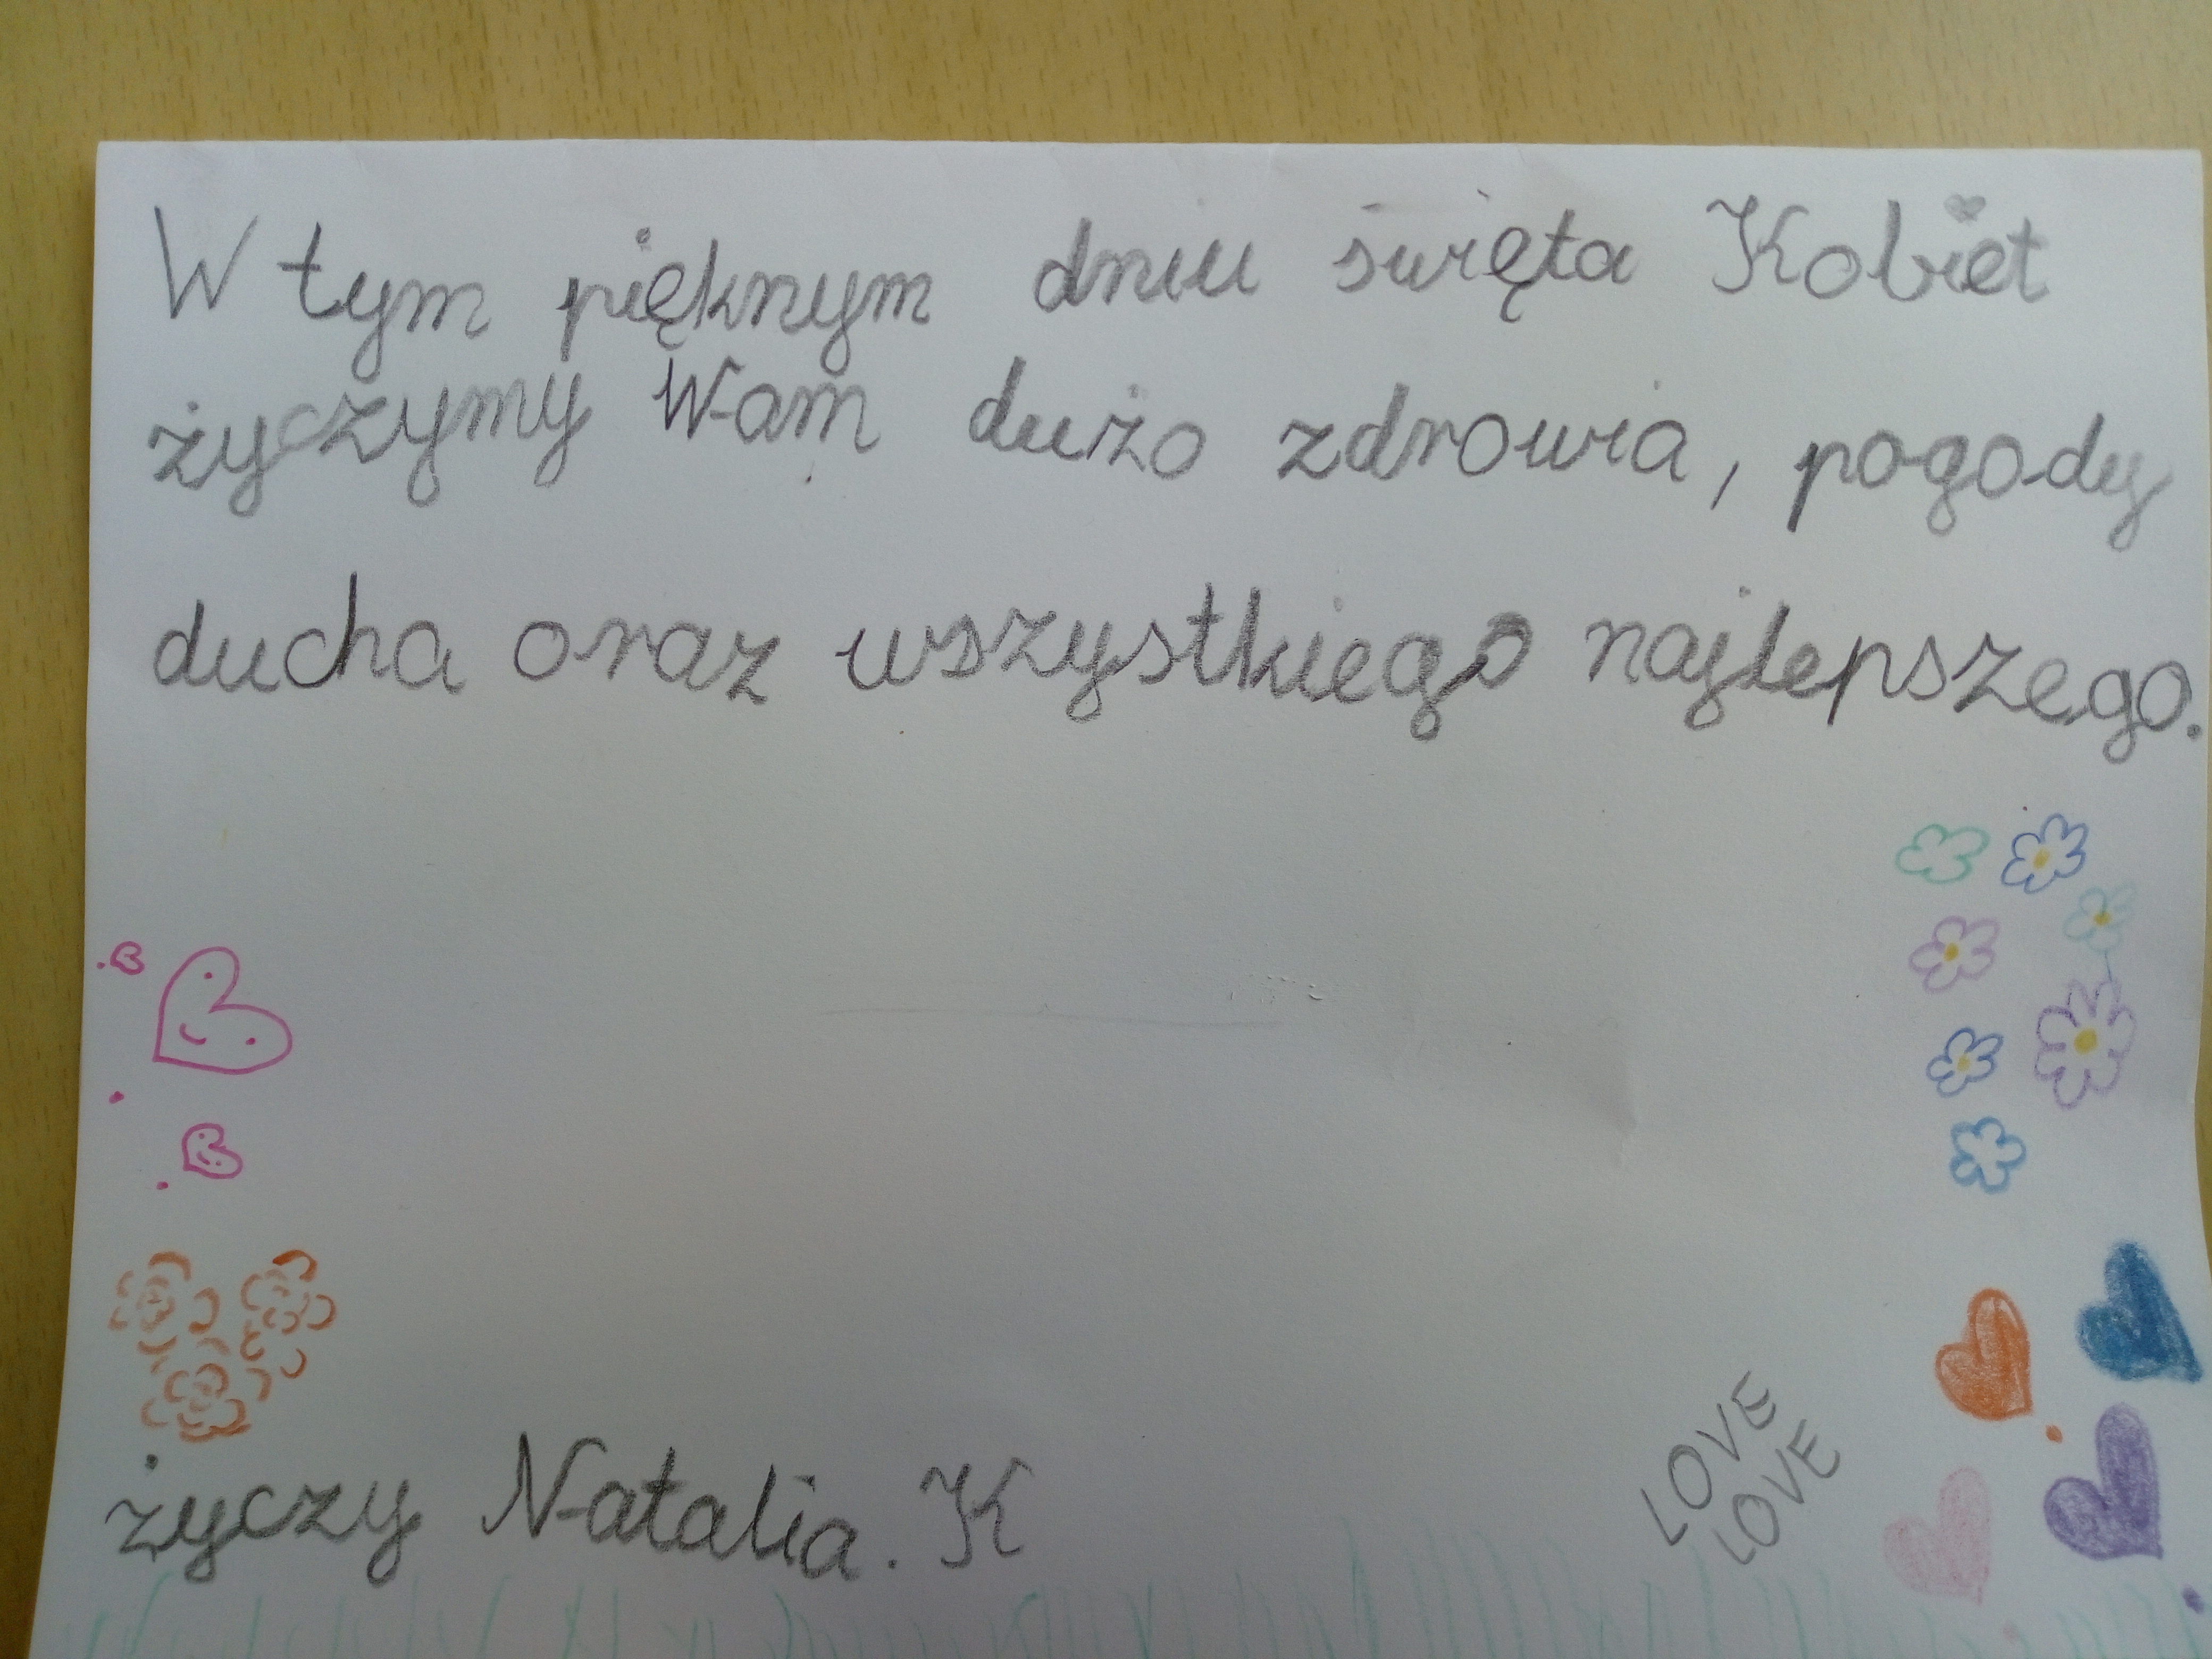 W tym pięknym dniu święta Kobiet
życzymy Wam dużo zdrowia, pogody
ducha oraz wszystkiego najlepszego.
życzy Natalia. K
LOVE
LOVE